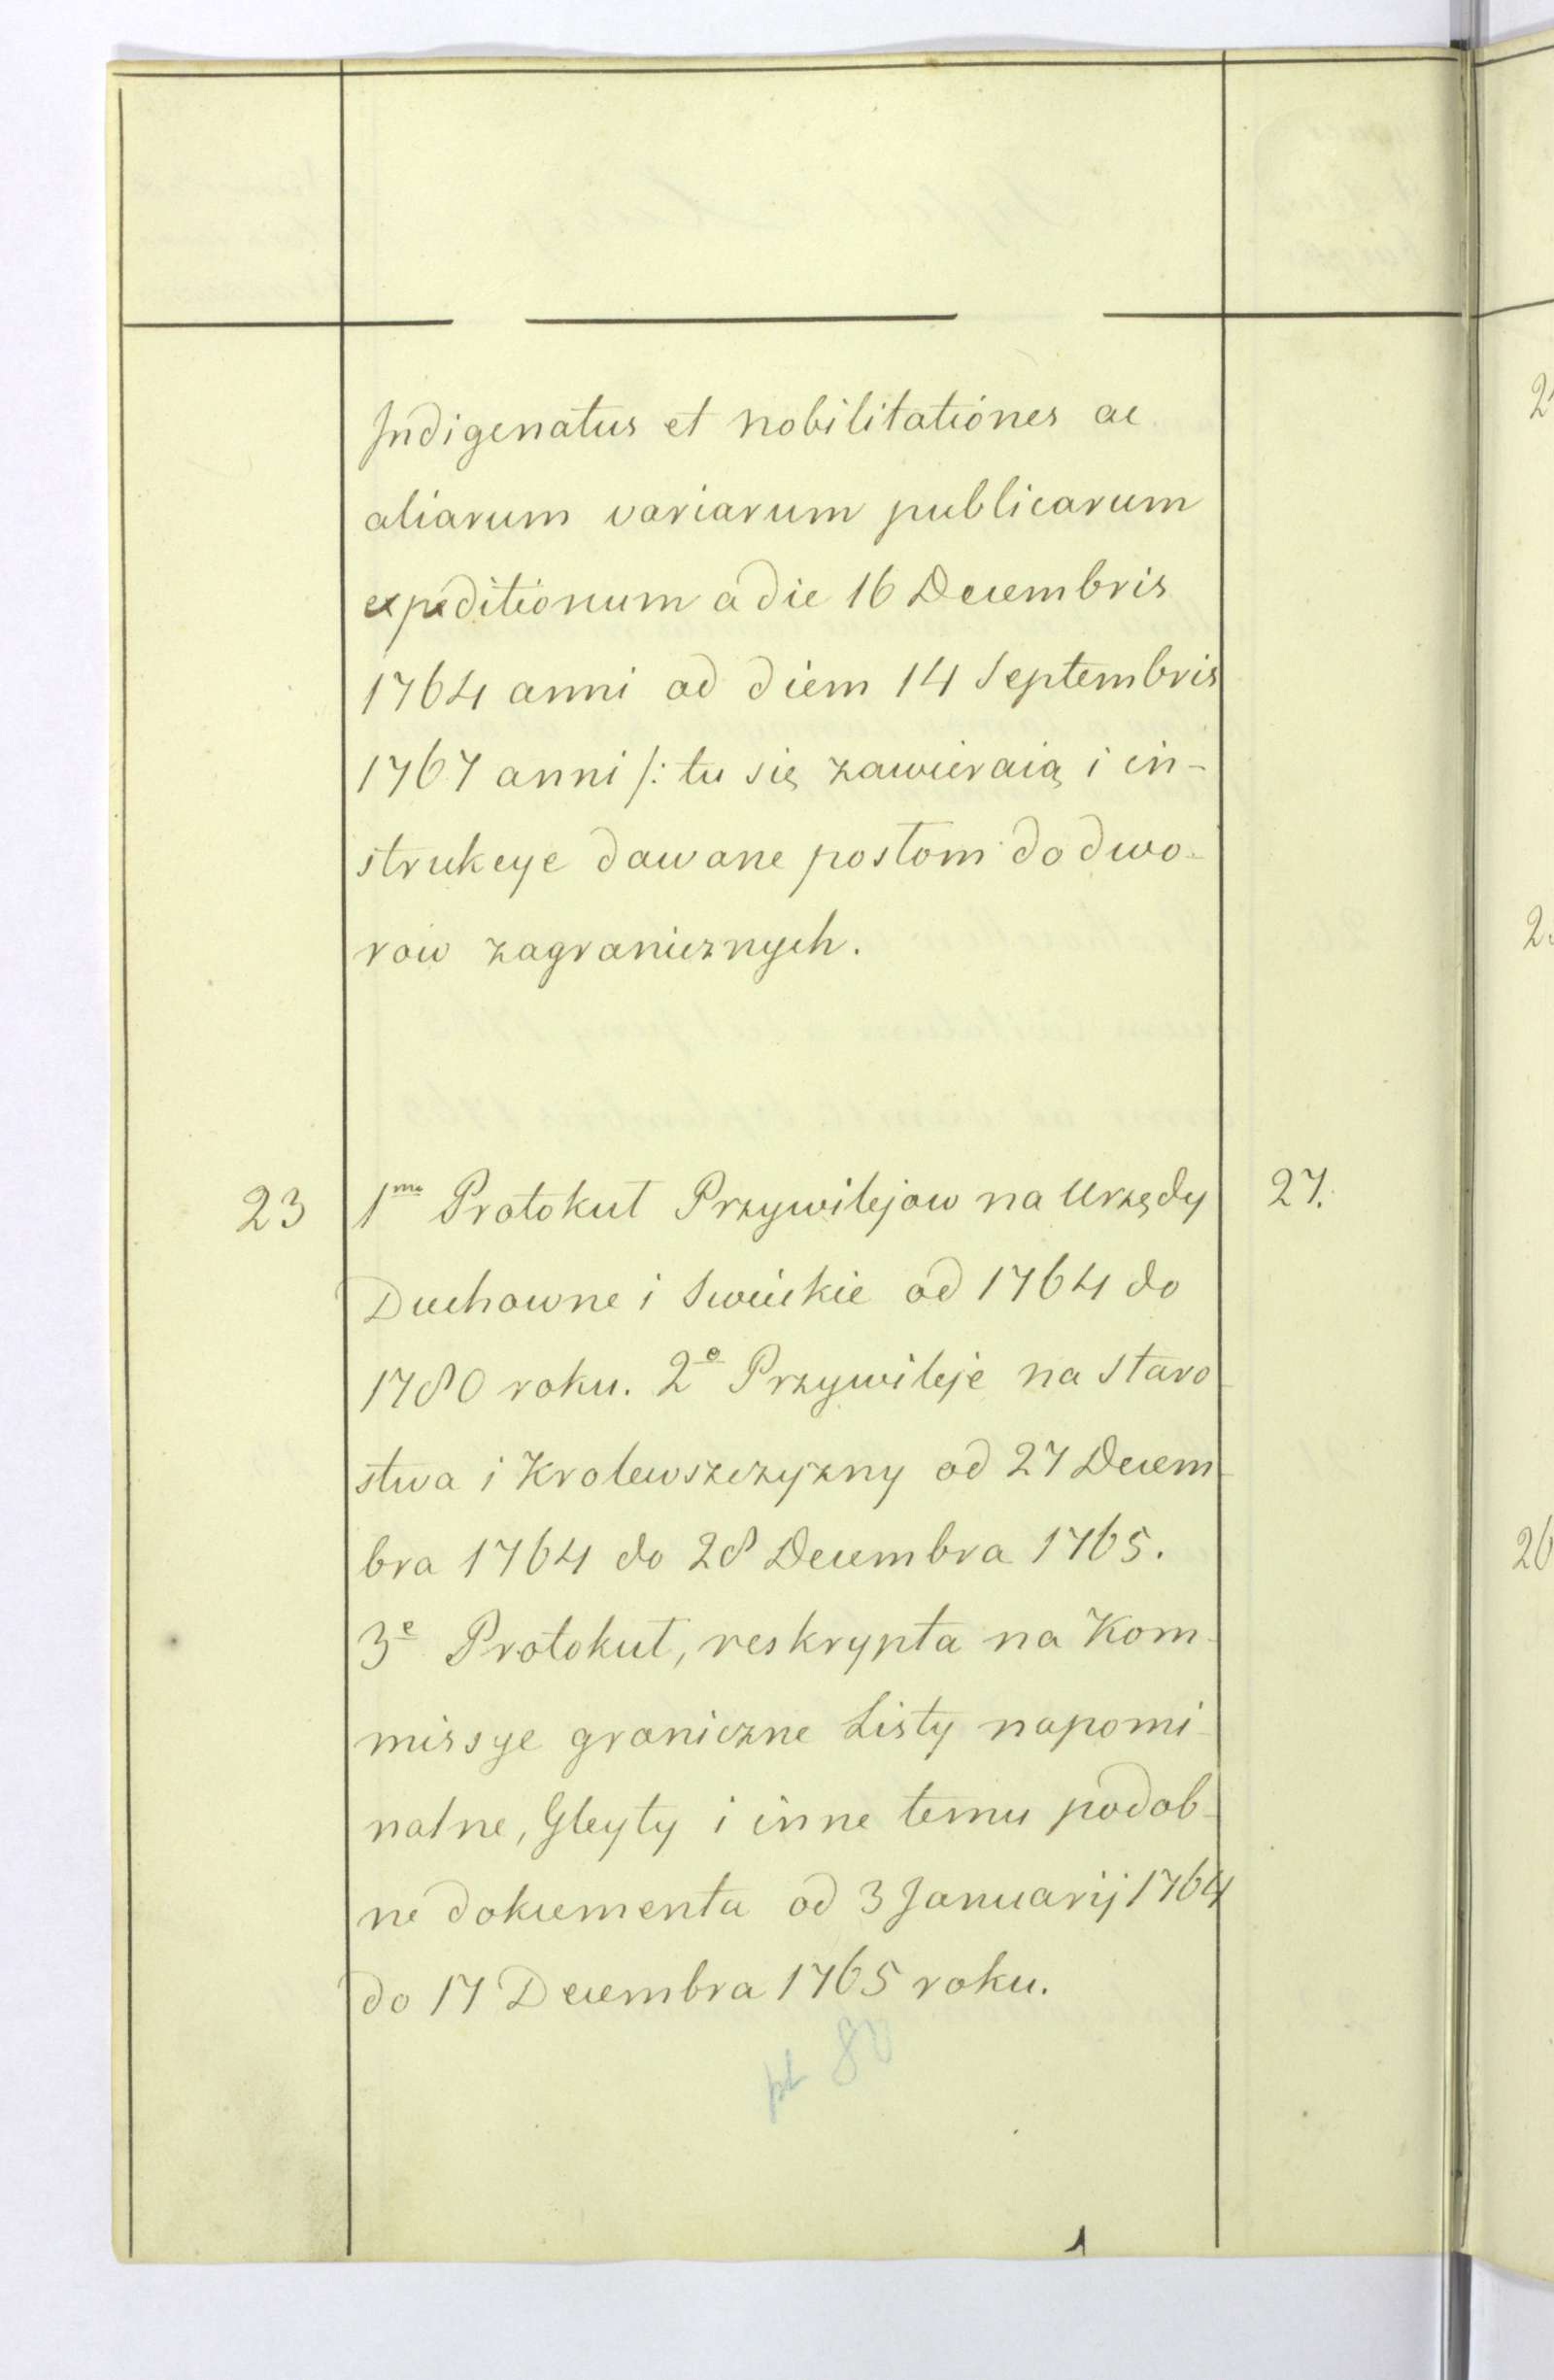 Indigenatus et nobilitationes ac
aliarum variarum publicarum
expeditionum a die 16 Decembris
1764 anni ad diem 14 Septembris
1767 anni /: tu się zawieraią i in-
strukcye dawane posłom do dwo-
row zagranicznych.
23 1mo Protokuł Przywilejow na Urzędy 27.
Duchowne i Swieckie od 1764 do
1780 roku. 2o Przywileje na Staro-
stwa i Krolewszczyzny od 27 Decem-
bra 1764 do 28 Decembra 1765.
3e Protokuł, reskrypta na Kom-
missye graniczne Listy napomi-
nalne, Gleyty i inne temu podob-
ne dokumenta od 3 Januarij 1764
do 17 Decembra 1765 roku.
pl 80